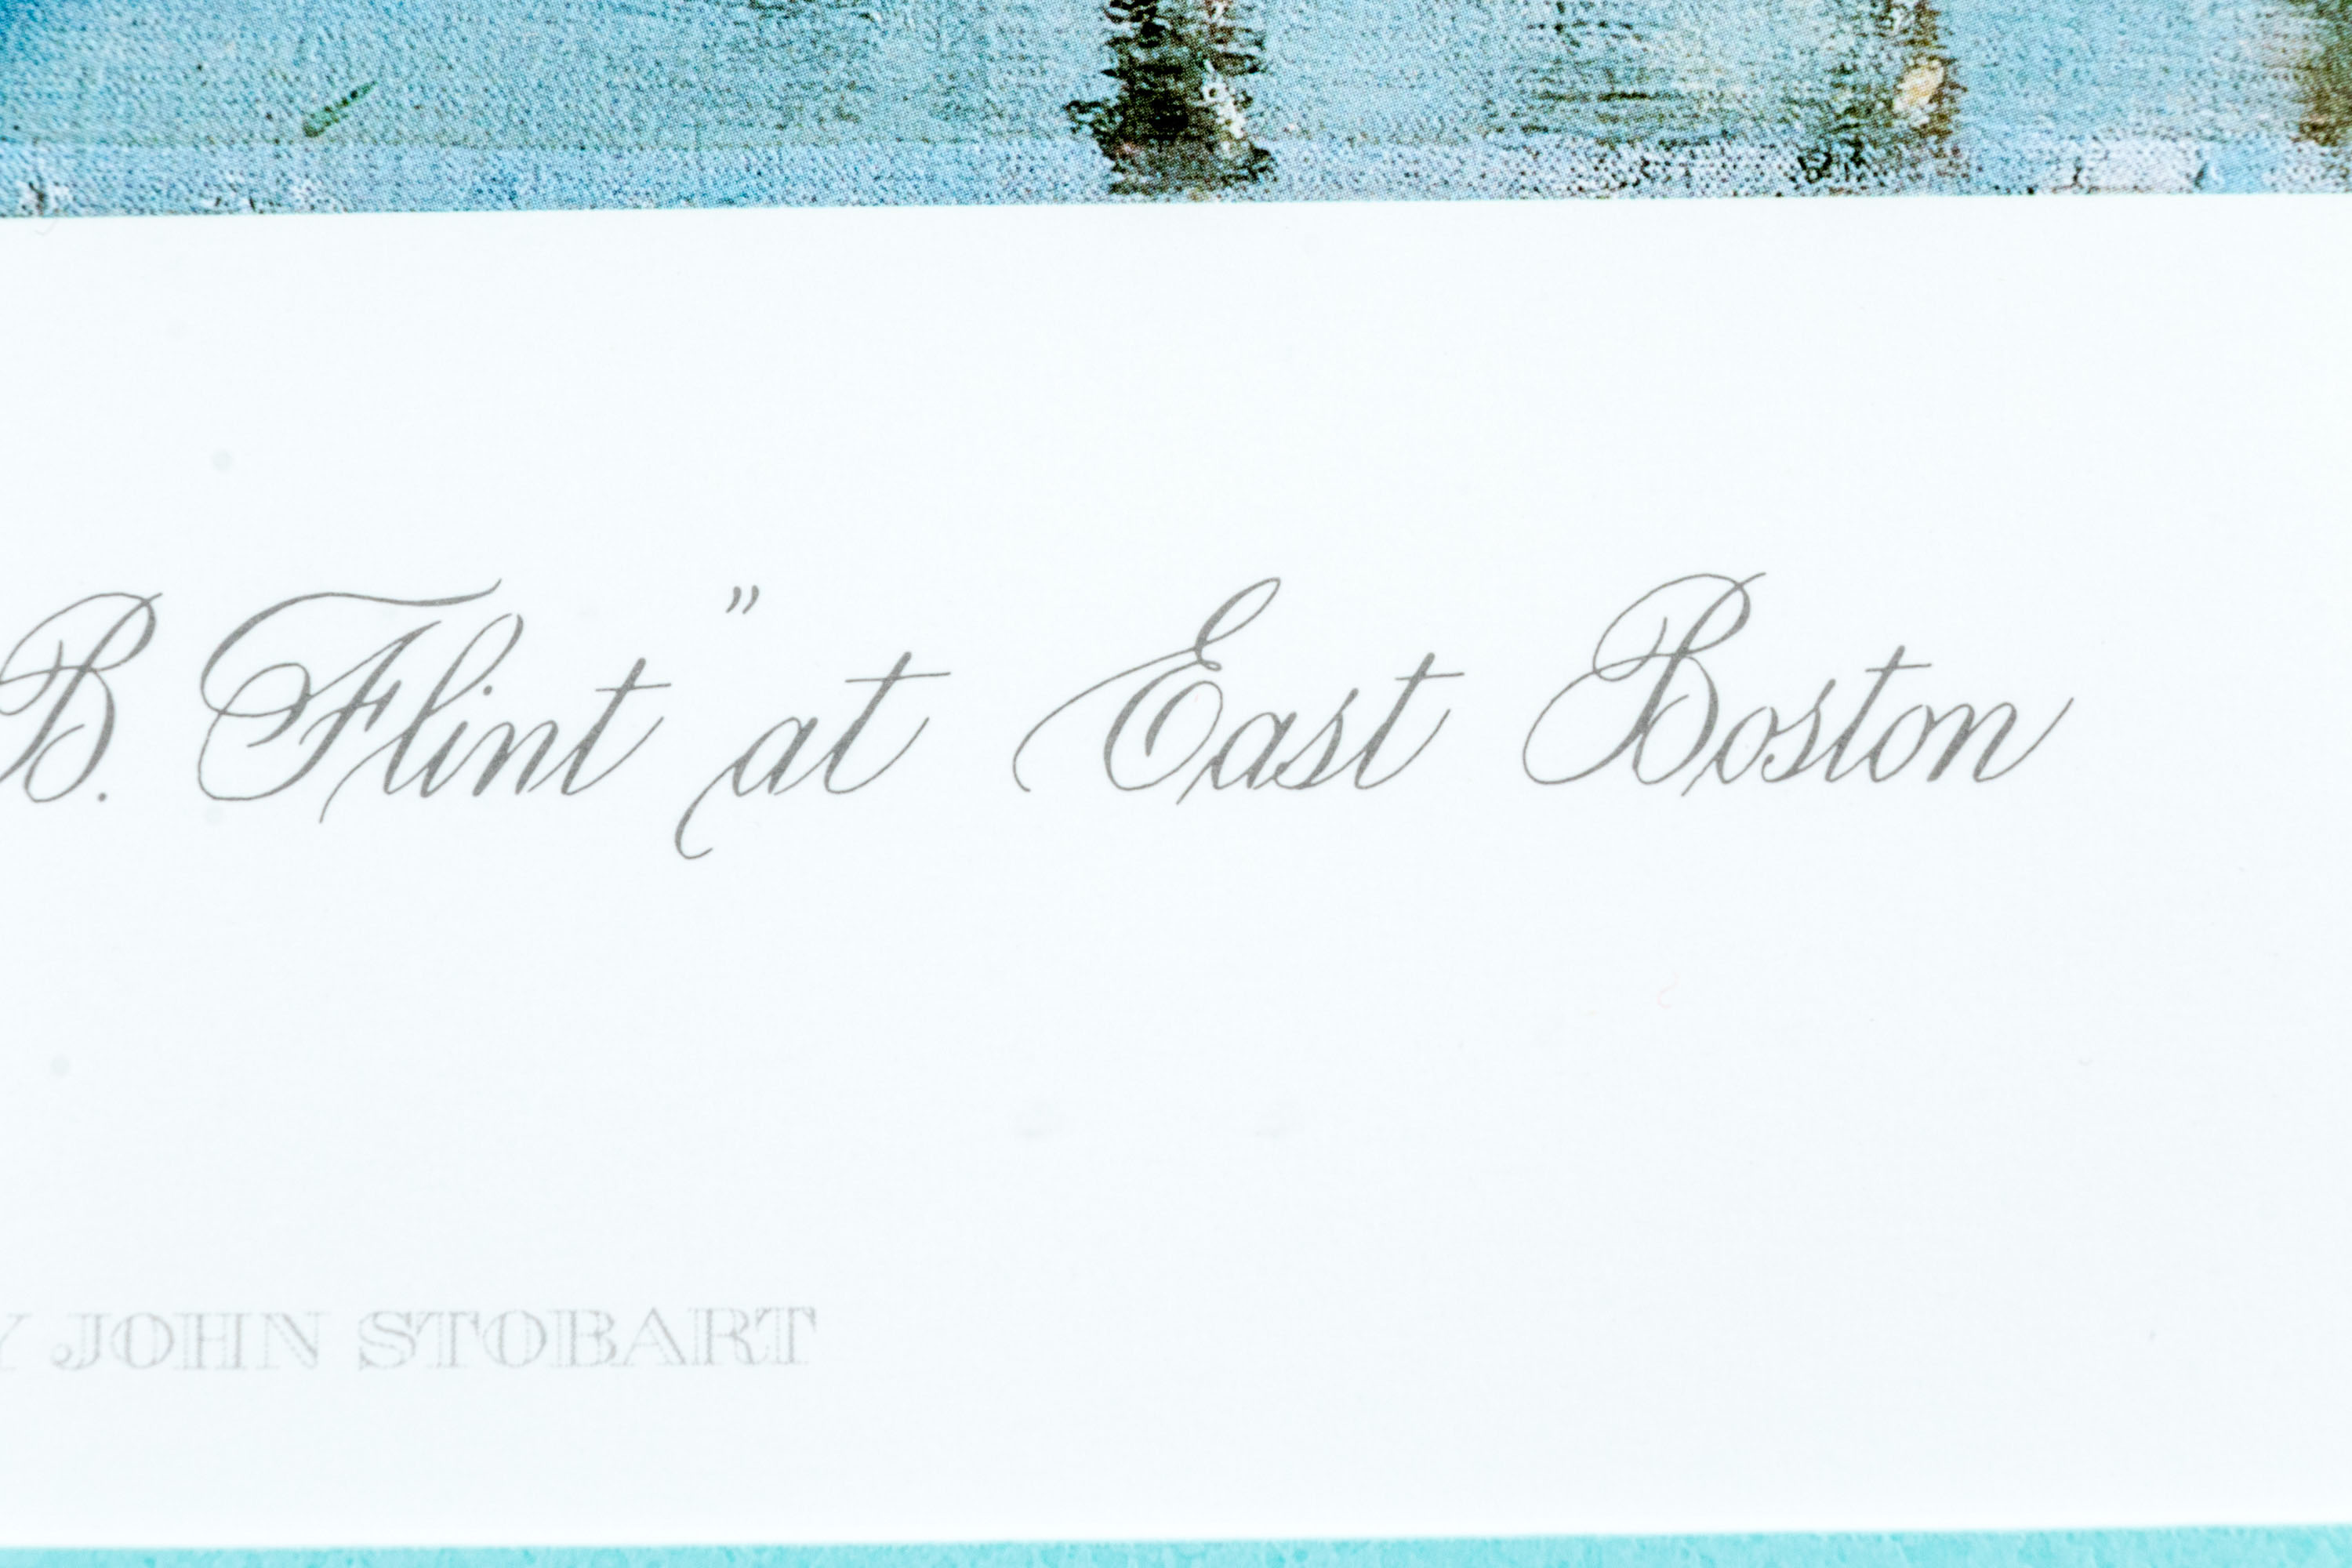 B. Flint" at East Boston
Y JOHN STOBART